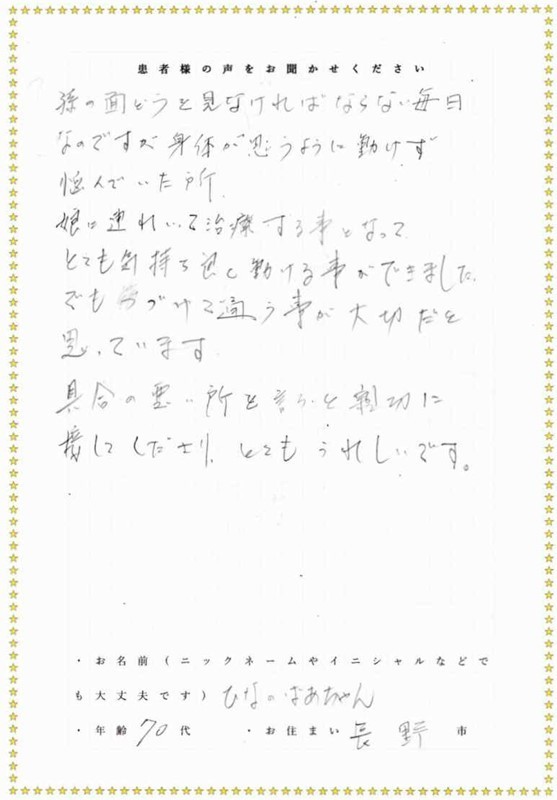 患者様の声をお聞かせください
孫の面どうを見なければならない毎日
なのですが身体が思うように動けず
悩んでいた所、
娘に連れいて治療する事となって
とても気持ち良く動ける事ができました、
でもつづけて通う事が大切だと
思っています
具合の悪い所を言うと親切に
接してくださり、とてもうれしいです。
・お名前(ニックネームやイニシャルなどで
も大丈夫です)ひなのばあちゃん
・年齢70代 ・お住まい長野市